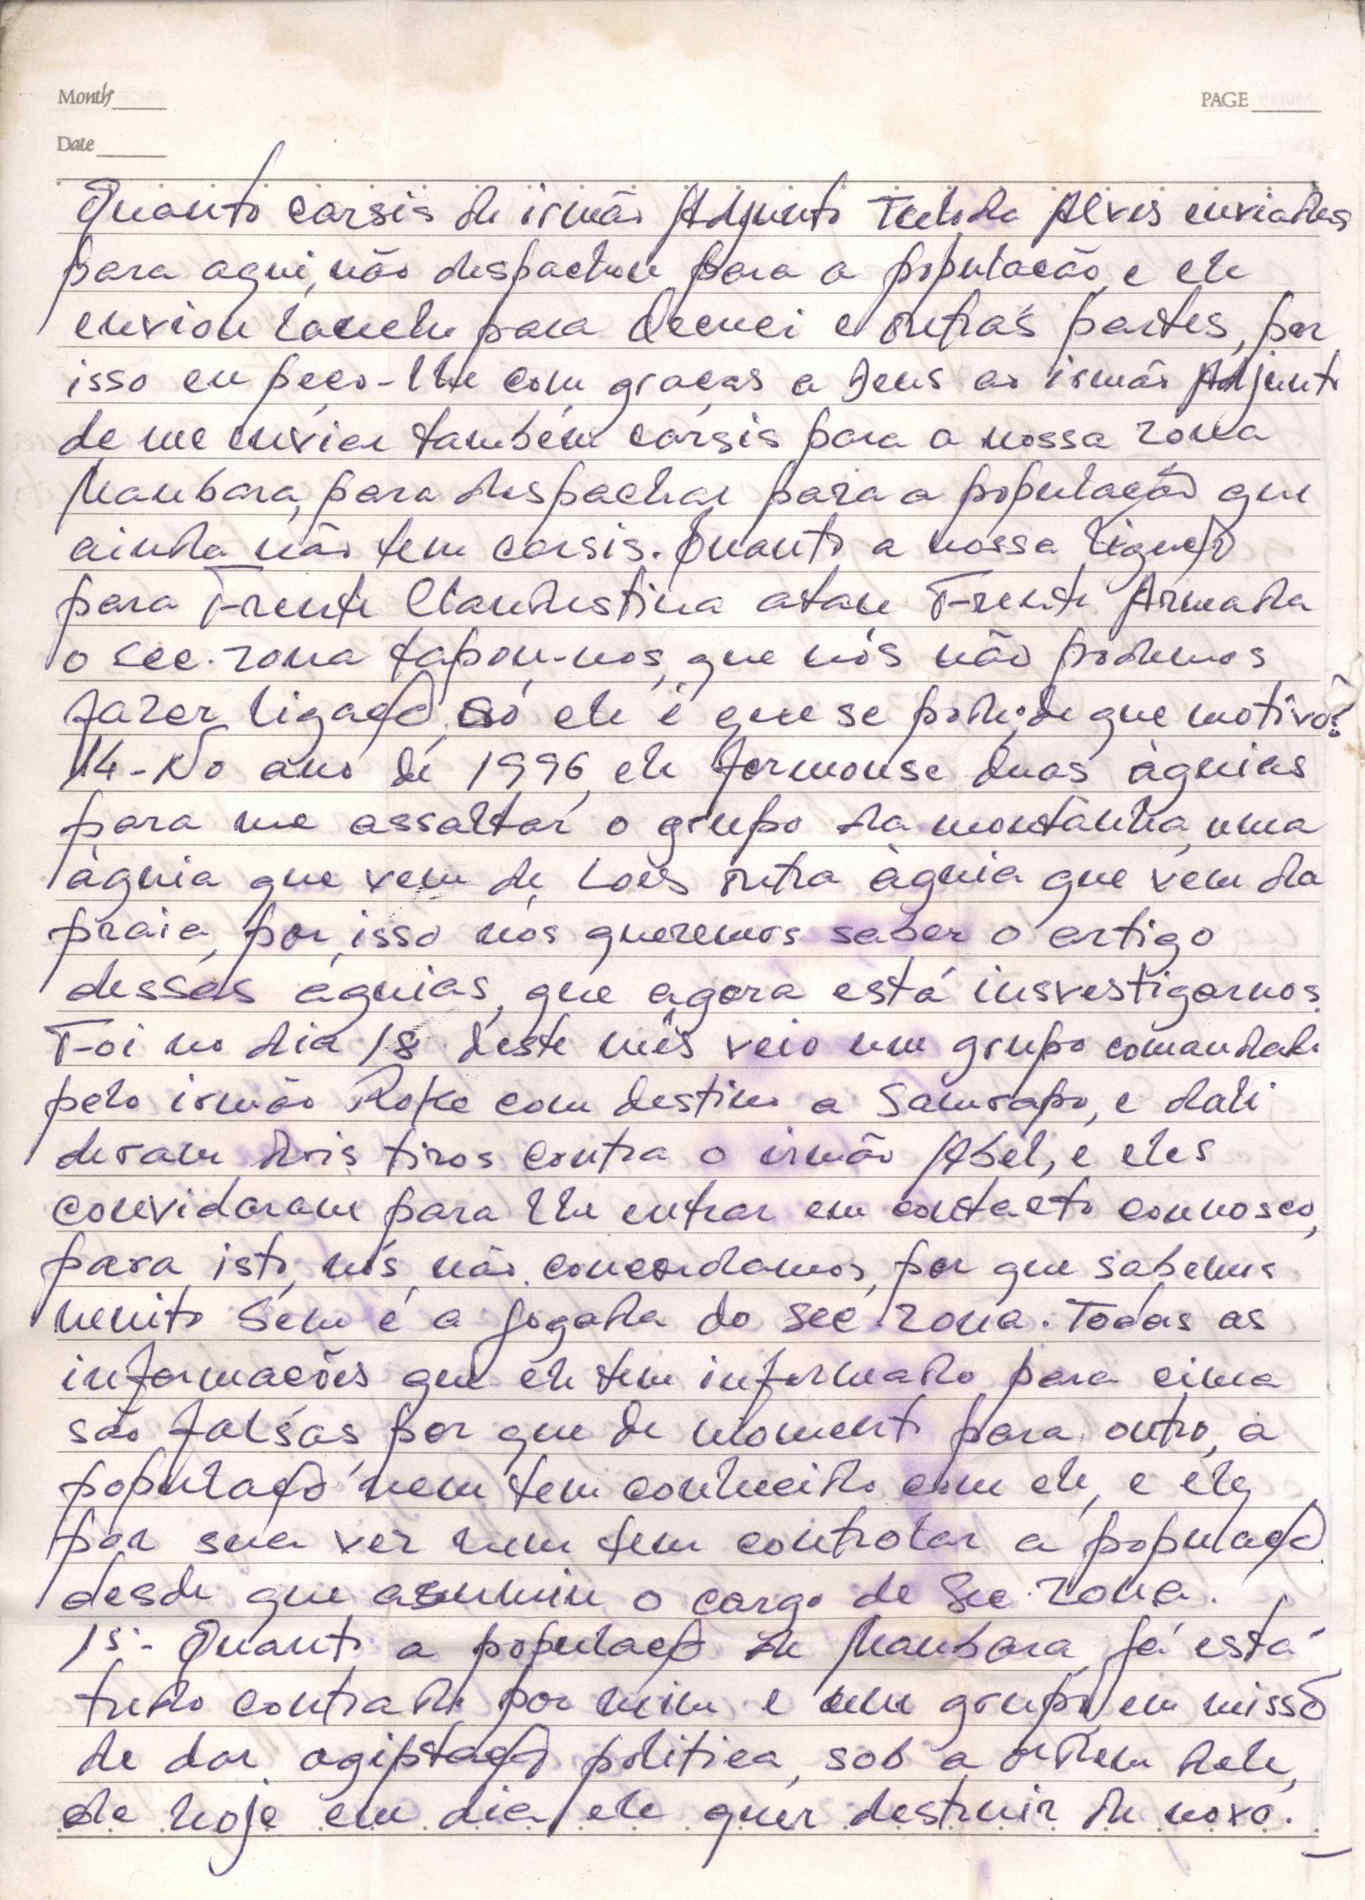 Month
Date
PAGE
Quanto carsis de irmão Adjunto enviados
para aqui, não despachou para a populacão, e ele
enviou para e outras partes, por
isso eu peço-lhe com graças a Deus ao irmão Adjunto
de me enviar também carsis para a nossa zona
Maubara, para despachar para a populacão que
ainda não tem carsis. Quanto a nossa ligação
para Frente Clandestina Frente Armada
o sec. zona tapou-nos, que nós não podemos
fazer ligação, só ele é que se pode; de que motivo?
14-No ano de 1996, ele formouse duas àguias
para me assaltar o grupo da montanha, uma
àguia que vem de Loes outra àguia que vem da
praia, por isso nós queremos saber o artigo
dessas águias, que agora está insvestigarnos.
Foi no dia 18 deste mês veio um grupo comandado
pelo irmão Roke com destino a Samrapo, e dali
deram dois tiros contra o irmão Abel, e eles
convidaram para lhe entrar em contacto connosco,
para isto, nós não concordamos, por que sabemos
muito bem é a jogada do sec. zona. Todas as
informações que ele tem informado para cima
são falsas, por que de momento para outro, a
população nem tem conhecido com ele, e ele
por sua vez nem tem controlar a população
desde que assumiu o cargo de Sec. zona.
15- Quanto a população de Maubara, já está
tudo por mim e um grupo, em missõ
de dar politica, sob a ordem dele,
ele hoje em dia ele quer destruir de novo.